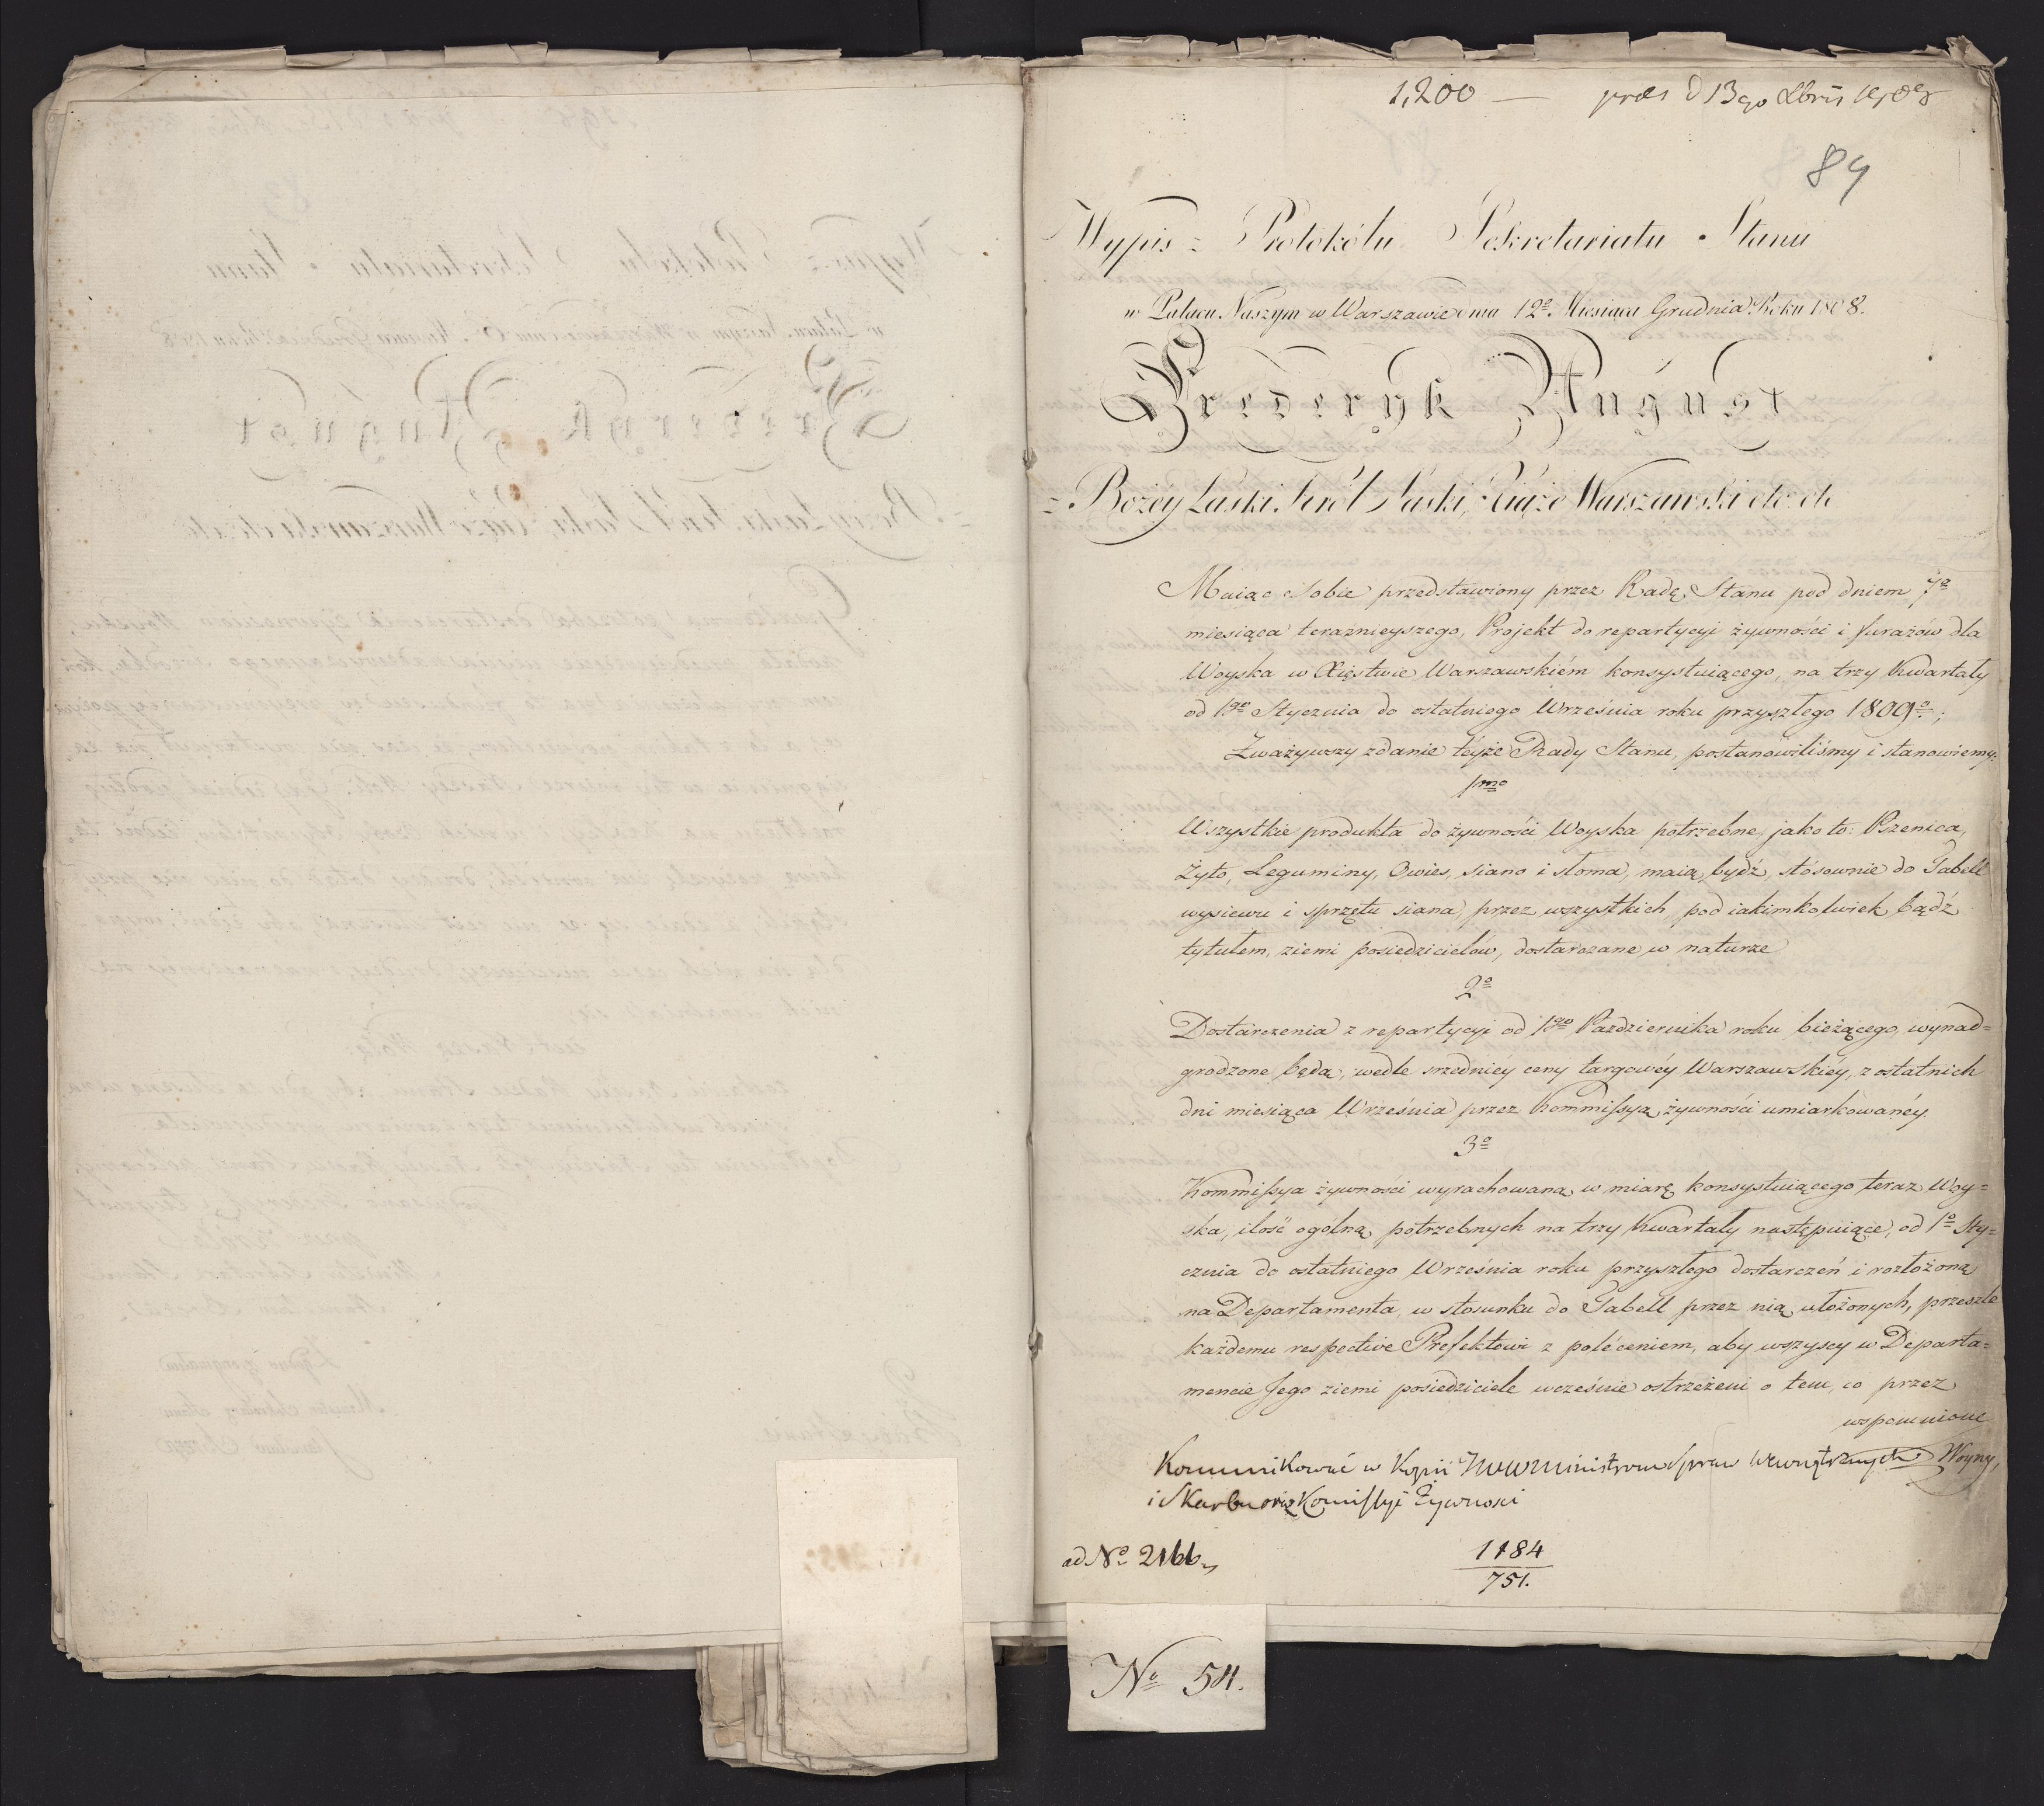 1,200 — præs d 13go Xbris 1808
84
Wypis z Protokółu Sekretariatu Stanu
w Pałacu Naszym w Warszawie dnia 12º Miesiąca Grudnia Roku 1808.
Frederyk August
z Bożey Łaski Król Saski, Xiąże Warszawski etc etc
Maiąc Sobie przedstawiony przez Radę Stanu pod dniem 7º
miesiąca teraźnieyszego, Projekt do repartycyi żywności i furażów dla
Woyska w Xięstwie Warszawskiém konsystuiącego, na trzy Kwartały
od 1go Stycznia do ostatniego Września roku przyszłego 1809º;
Zważywszy zdanie téyże Rady Stanu, postanowiliśmy i stanowiemy:
1mo
Wszystkie produkta do żywności Woyska potrzebne, jako to: Pszenica,
żyto, Leguminy, Owies, siano i słoma, maią bydź, stósownie do Tabell
wysiewu i sprzętu siana, przez wszystkich, pod iakimkolwiek bądź
tytułem, ziemi posiedzicielów, dostarczane w naturze
2º
Dostarczenia z repartycyi od 1go Pazdziernika roku bieżącego, wynad=
grodzone będą, wedle srzedniéy ceny targowéy Warszawskiéy, z ostatnich
dni miesiąca Września przez Kommissyą żywności umiarkowanéy.
3º
Kommissya żywności wyrachowaną w miarę konsystuiącego teraz Woy=
ska, ilość ogólną potrzebnych na trzy Kwartały następuiące, od 1º Sty=
cznia do ostatniego Września roku przyszłego dostarczeń i rozłożoną
na Departamenta, w stosunku do Tabell przez nią ułożonych, przeszle
każdemu respective Prefektowi z poléceniem, aby wszyscy w Departa=
mencie Jego ziemi posiedziciele wcześnie ostrzeżeni o tem, co przez
wspomnione
Kommunikować w Kopii Ministrom Spraw Wewnętrznych Woyny,
i Skarbu oraz Komissyi Żywności
ad Nº 2166
1184
751.
Nº 54.